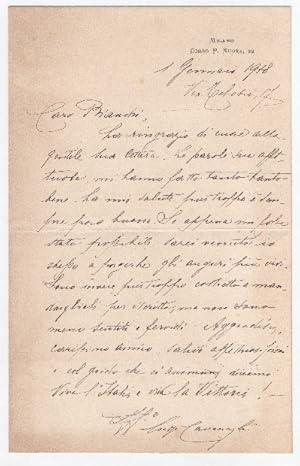 MILANO
CORSO P. NUOVA,
1 Gennaio 1918
Via
Caro Bianchi,
La ringrazio di cuore della
gentile Sua lettera. Le parole Sue affet-
tuose mi hanno fatto tanto tanto
bene. La mia salute purtroppo è sem-
pre poco buona. Se appena mi fosse
stato possibile sarei venuto io
stesso a porgerle gli auguri più vivi.
Sono invece purtroppo costretto a man-
darglieli per iscritto, ma non sono
meno sentiti e fervidi. Aggradisca,
carissimo amico saluti affettuosissimi
e col grido che ci accomuna diciamo
Viva l'Italia e viva la Vittoria! —
Luigi